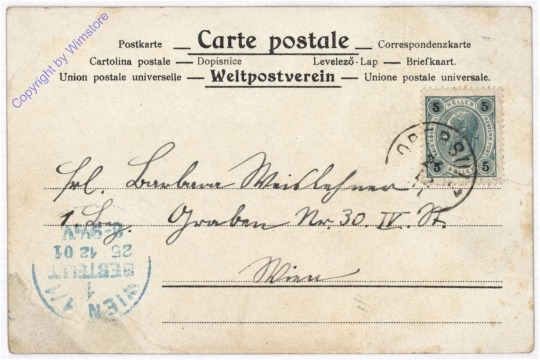 Carte postale
Postkarte — — Correspondenzkarte
Cartolina postale — Dopisnice Levelező-Lap — Briefkaart.
Union postale universelle — Weltpostverein — Unione postale universale.
Copyright by Wimstore
5 HELLER 5
5 HELLER 5
Frl. Barbara Weislehner
1. Bez. Graben Nr. 30 IV. St.
Wien
WIEN 1/1
1
BESTELLT
25 12 01